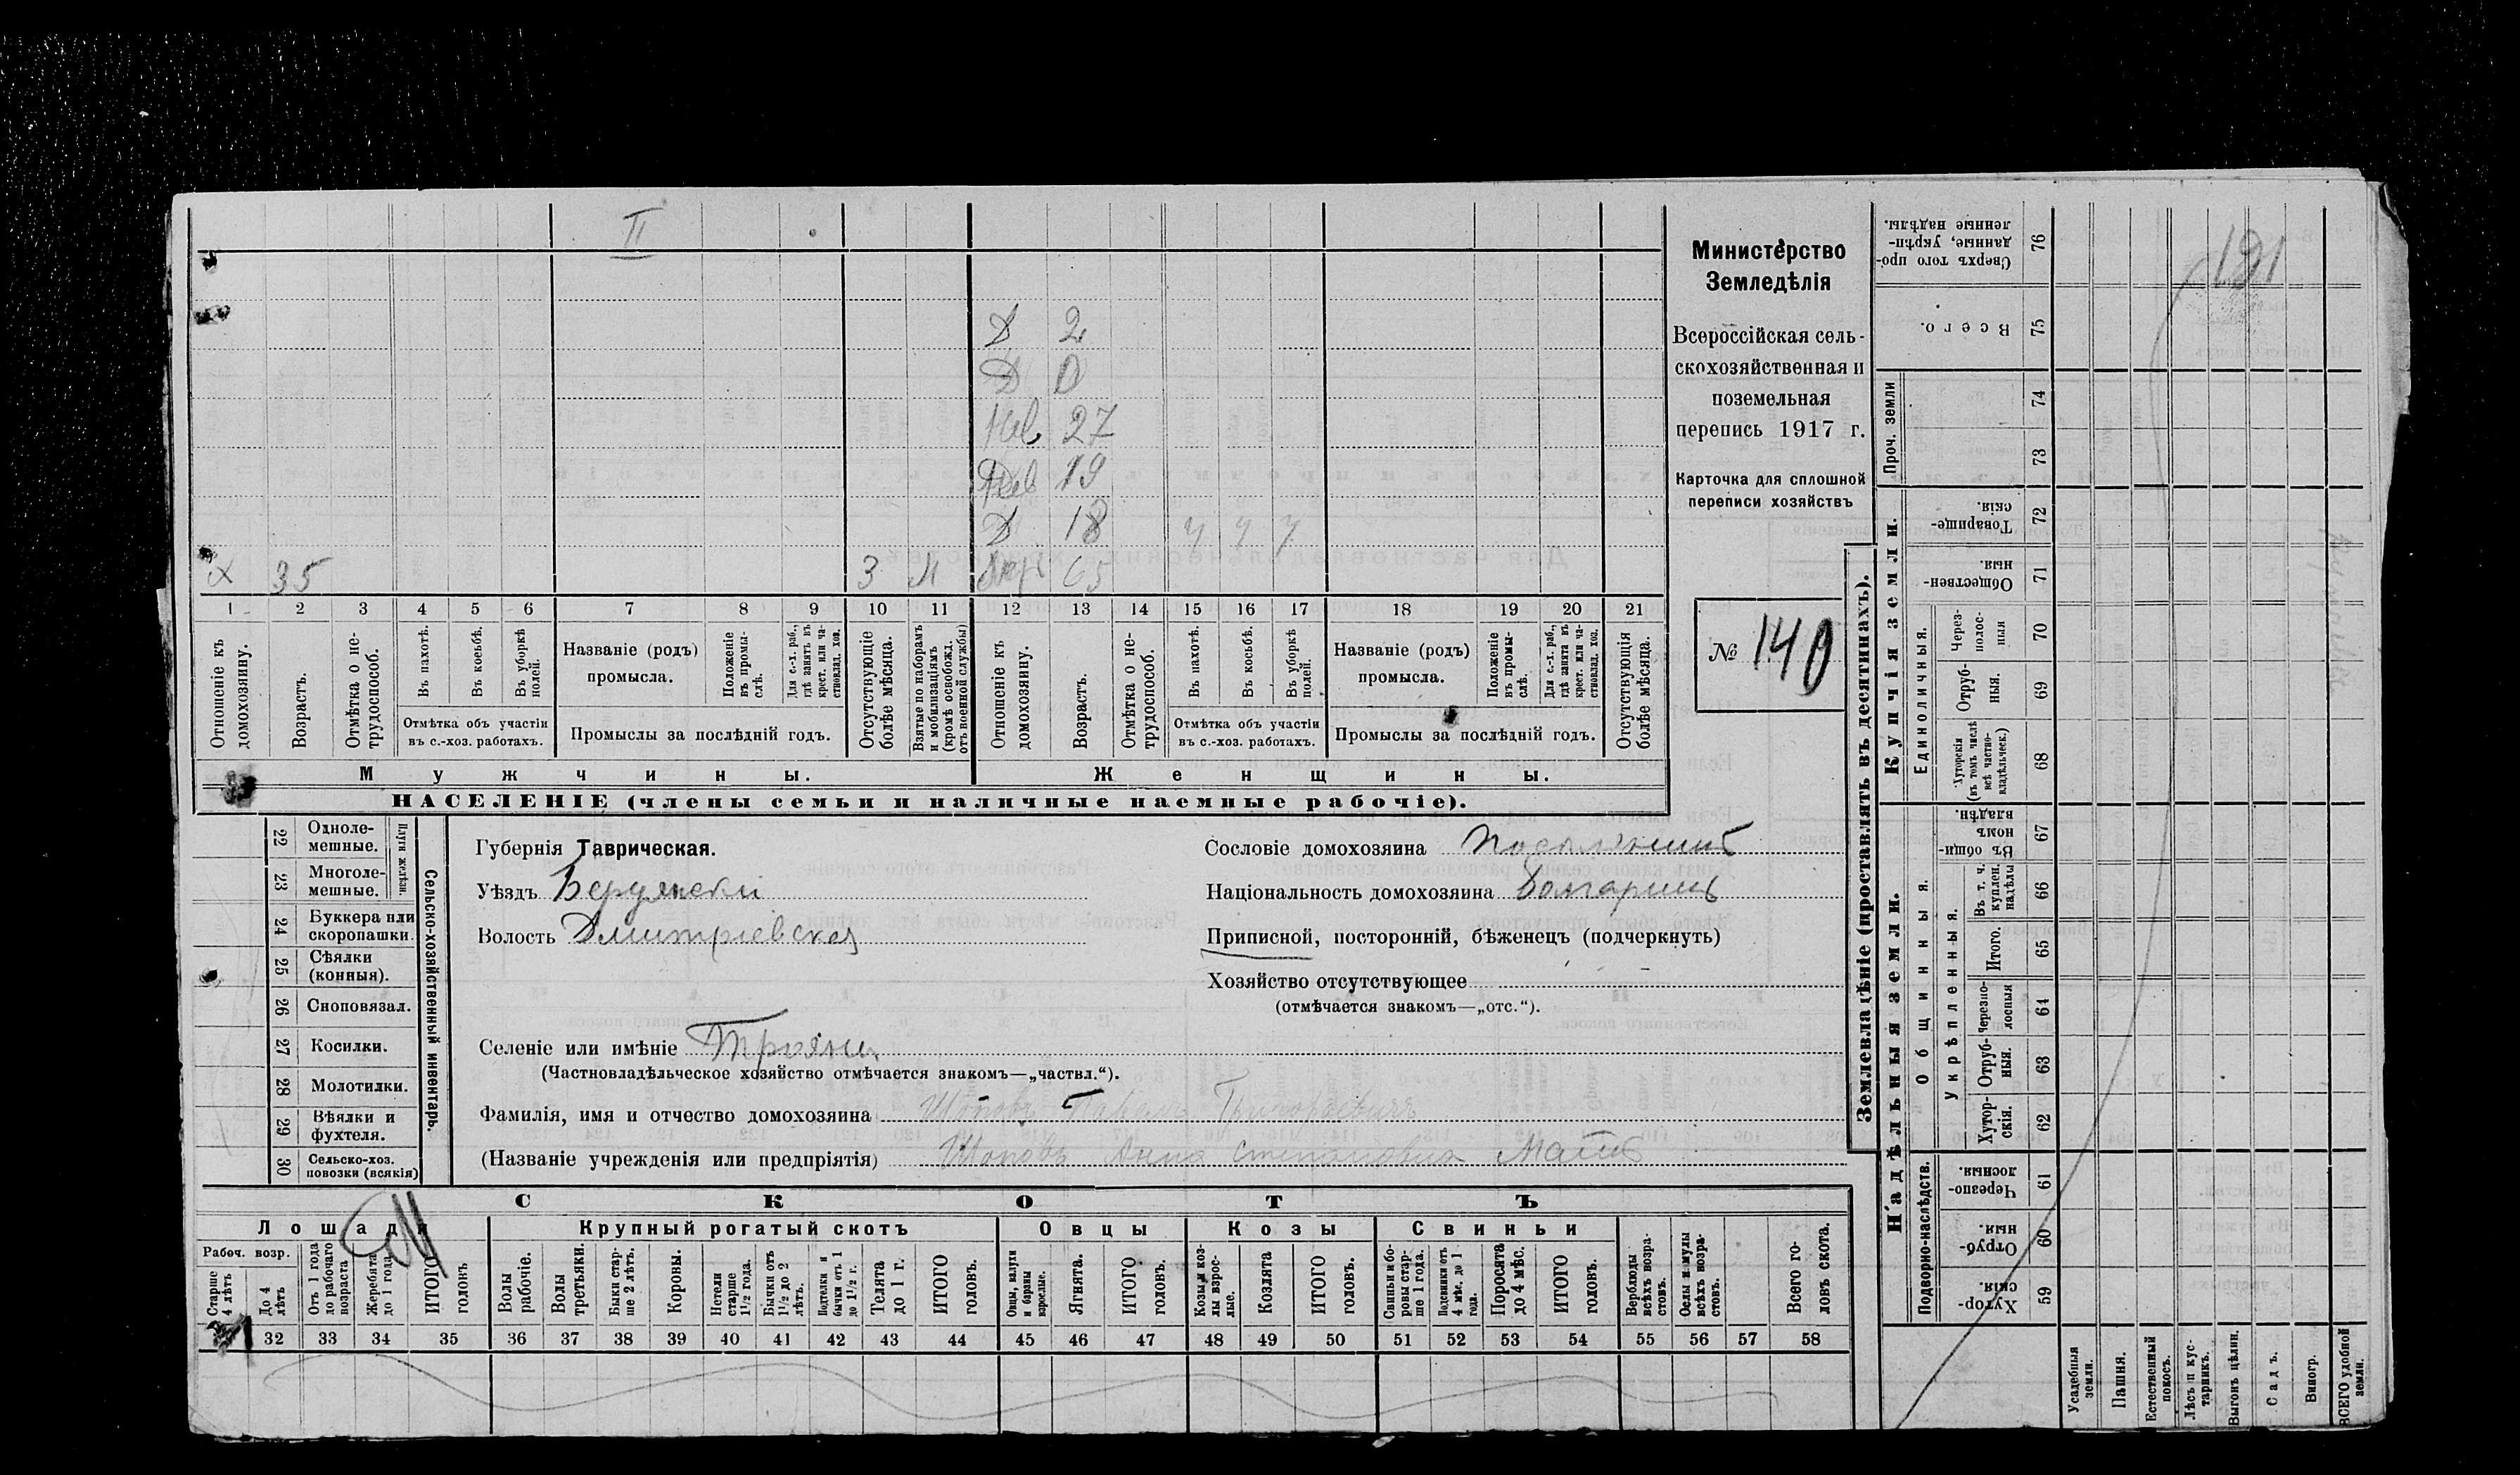 II
Д 2
Д 0
Нев 27
19
Д 18 ч ч ч
Х 35 3 М 65
1 2 3 4 5 6 7 8 9 10 11 12 13 14 15 16 17 18 19 20 21
Отношеніе къ домохозяину.
Возрастъ.
Отмѣтка о не-
трудоспособ.
Въ пахотѣ.
Въ косьбѣ.
Въ уборкѣ
полей.
Отмѣтка объ участіи
въ с.-хоз. работахъ.
Названіе (родъ)
промысла.
Положеніе
въ промы-
слѣ.
Для с.-х. раб.,
гдѣ занятъ въ
крест. или ча-
стновлад. хоз.
Промыслы за послѣдній годъ.
Отсутствующіе
болѣе мѣсяца.
Взятые по наборамъ
и мобилизаціямъ
(кромѣ освобожд.
отъ военной службы)
Отношеніе къ
домохозяину.
Возрастъ.
Отмѣтка о не-
трудоспособ.
Въ пахотѣ.
Въ косьбѣ.
Въ уборкѣ
полей.
Отмѣтка объ участіи
въ с.-хоз. работахъ.
Названіе (родъ)
промысла.
Положеніе
въ промы-
слѣ.
Для с.-х. раб.,
гдѣ занята въ
крест. или ча-
стновлад. хоз.
Промыслы за послѣдній годъ.
Отсутствующія
болѣе мѣсяца.
Мужчины.
Женщины.
НАСЕЛЕНІЕ (члены семьи и наличные наемные рабочіе).
Министерство
Земледѣлія
Всероссійская сель-
скохозяйственная и
поземельная
перепись 1917 г.
Карточка для сплошной
переписи хозяйствъ
№ 140
22 Одноле-
мешные.
23 Многоле-
мешные.
Плуги желѣзн.
24 Буккера или
скоропашки.
25 Сѣялки
(конныя).
26 Сноповязал.
27 Косилки.
28 Молотилки.
29 Вѣялки и
фухтеля.
30 Сельско-хоз.
повозки (всякія)
Сельско-хозяйственный инвентарь.
Губернія Таврическая.
Уѣздъ Бердянскій
Волость Дмитріевская
Селеніе или имѣніе Трояны
(Частновладѣльческое хозяйство отмѣчается знакомъ—„частвл.“).
Фамилія, имя и отчество домохозяина Шоповъ Павелъ Григорьевичъ
(Названіе учрежденія или предпріятія) Шоповъ Анна Степановна Мать
Сословіе домохозяина поселянинъ
Національность домохозяина болгаринъ
Приписной, посторонній, бѣженецъ (подчеркнуть)
Хозяйство отсутствующее
(отмѣчается знакомъ—„отс.“).
СКОТЪ
Лошади
Крупный рогатый скотъ
Овцы
Козы
Свиньи
Рабоч. возр.
Старше
4 лѣтъ
До 4
лѣтъ
Отъ 1 года
до рабочаго
возраста
Жеребята
до 1 года
ИТОГО
головъ
Волы
рабочіе.
Волы
третьяки.
Быки стар-
ше 2 лѣтъ.
Коровы.
Нетели
старше
1½ года.
Бычки отъ
1½ до 2
лѣтъ.
Подтелки и
бычки отъ 1
до 1½ г.
Телята
до 1 г.
ИТОГО
головъ.
Овцы, валухи
и бараны
взрослые.
Ягнята.
ИТОГО
головъ.
Козы и коз-
лы взрос-
лые.
Козлята
ИТОГО
головъ.
Свиньи и бо-
ровы стар-
ше 1 года.
Подсвинки отъ
4 мѣс. до 1
года.
Поросята
до 4 мѣс.
ИТОГО
головъ.
Верблюды
всѣхъ возра-
стовъ.
Ослы и мулы
всѣхъ возра-
стовъ.
Всего го-
ловъ скота.
32 33 34 35 36 37 38 39 40 41 42 43 44 45 46 47 48 49 50 51 52 53 54 55 56 57 58
Землевладѣніе (проставлять въ десятинахъ).
Надѣльныя земли.
Купчія земли.
Проч. земли
Подворно-наслѣдств.
Общинныя.
Укрѣпленныя.
Единоличныя.
Сверхъ того про-
данные, укрѣп-
ленные надѣлы.
76
Всего.
75
74
73
Товарище-
скія.
72
Обществен-
ныя.
71
Через-
полос-
ныя
70
Отруб-
ныя.
69
Хуторскія
(въ томъ числѣ
всѣ частно-
владѣльческ.)
68
Въ общи-
номъ
владѣн.
67
Въ т. ч.
куплен.
надѣлы
66
Итого.
65
Черезпо-
лосныя
64
Отруб-
ныя.
63
Хутор-
скія.
62
Черезпо-
лосныя.
61
Отруб-
ныя.
60
Хутор-
скія.
59
Усадебныя
земли.
Пашня.
Естественный
покосъ.
Лѣсъ и кус-
тарникъ.
Выгонъ цѣлин.
Садъ.
Виногр.
ВСЕГО удобной
земли.
191